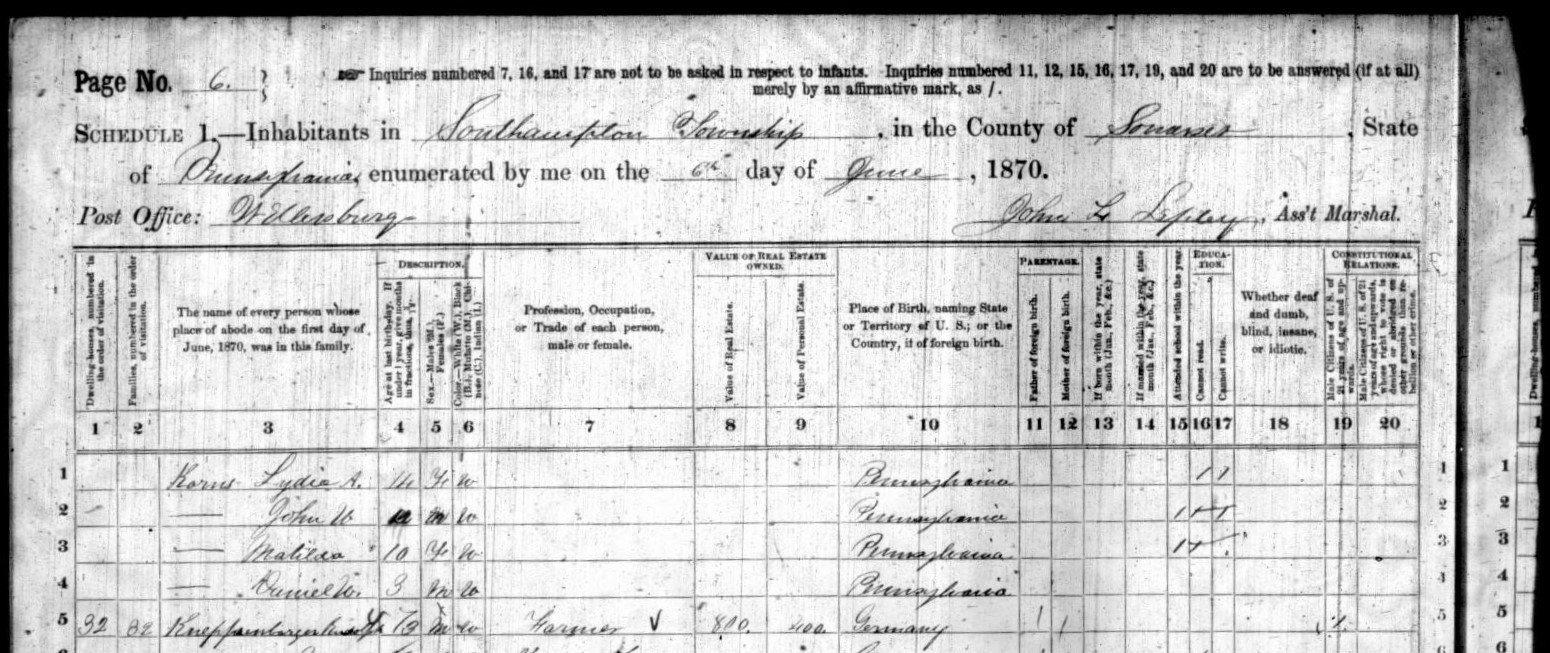 Page No. 6. } Inquiries numbered 7, 16, and 17 are not to be asked in respect to infants. Inquiries numbered 11, 12, 15, 16, 17, 19, and 20 are to be answered (if at all)
merely by an affirmative mark, as /.
SCHEDULE 1.—Inhabitants in Southampton Township, in the County of Somerset, State
of Pennsylvania, enumerated by me on the 6th day of June, 1870.
Post Office: Wellersburg John L Lepley, Ass't Marshal.
Dwelling-houses, numbered in the order of visitation.
Families, numbered in the order of visitation.
The name of every person whose
place of abode on the first day of
June, 1870, was in this family.
DESCRIPTION.
Age at last birth-day. If under 1 year, give months in fractions, thus,
Sex.—Males (M.), Females (F.)
Color.—White (W.), Black (B.), Mulatto (M.), Chinese (C.), Indian (I.)
Profession, Occupation,
or Trade of each person,
male or female.
VALUE OF REAL ESTATE
OWNED.
Value of Real Estate.
Value of Personal Estate.
Place of Birth, naming State
or Territory of U. S.; or the
Country, if of foreign birth.
PARENTAGE.
Father of foreign birth.
Mother of foreign birth.
If born within the year, state month (Jan., Feb., &c.)
If married within the year, state month (Jan., Feb., &c.)
Attended school within the year.
EDUCA-
TION.
Cannot read.
Cannot write.
Whether deaf
and dumb,
blind, insane,
or idiotic.
CONSTITUTIONAL
RELATIONS.
Male Citizens of U. S. of 21 years of age and upwards.
Male Citizens of U. S. of 21 years of age and upwards, whose right to vote is denied or abridged on other grounds than rebellion or other crime.
1 2 3 4 5 6 7 8 9 10 11 12 13 14 15 16 17 18 19 20
1 Korns Lydia A. 14 F W Pennsylvania / / 1 1
2 — John W m W Pennsylvania 2 2
3 — Matilda 10 F W Pennsylvania 3 3
4 — Daniel W. 3 m W Pennsylvania 4 4
5 32 32 73 m W Farmer V 800. 400. Germany / / / 5 5
6 6 6